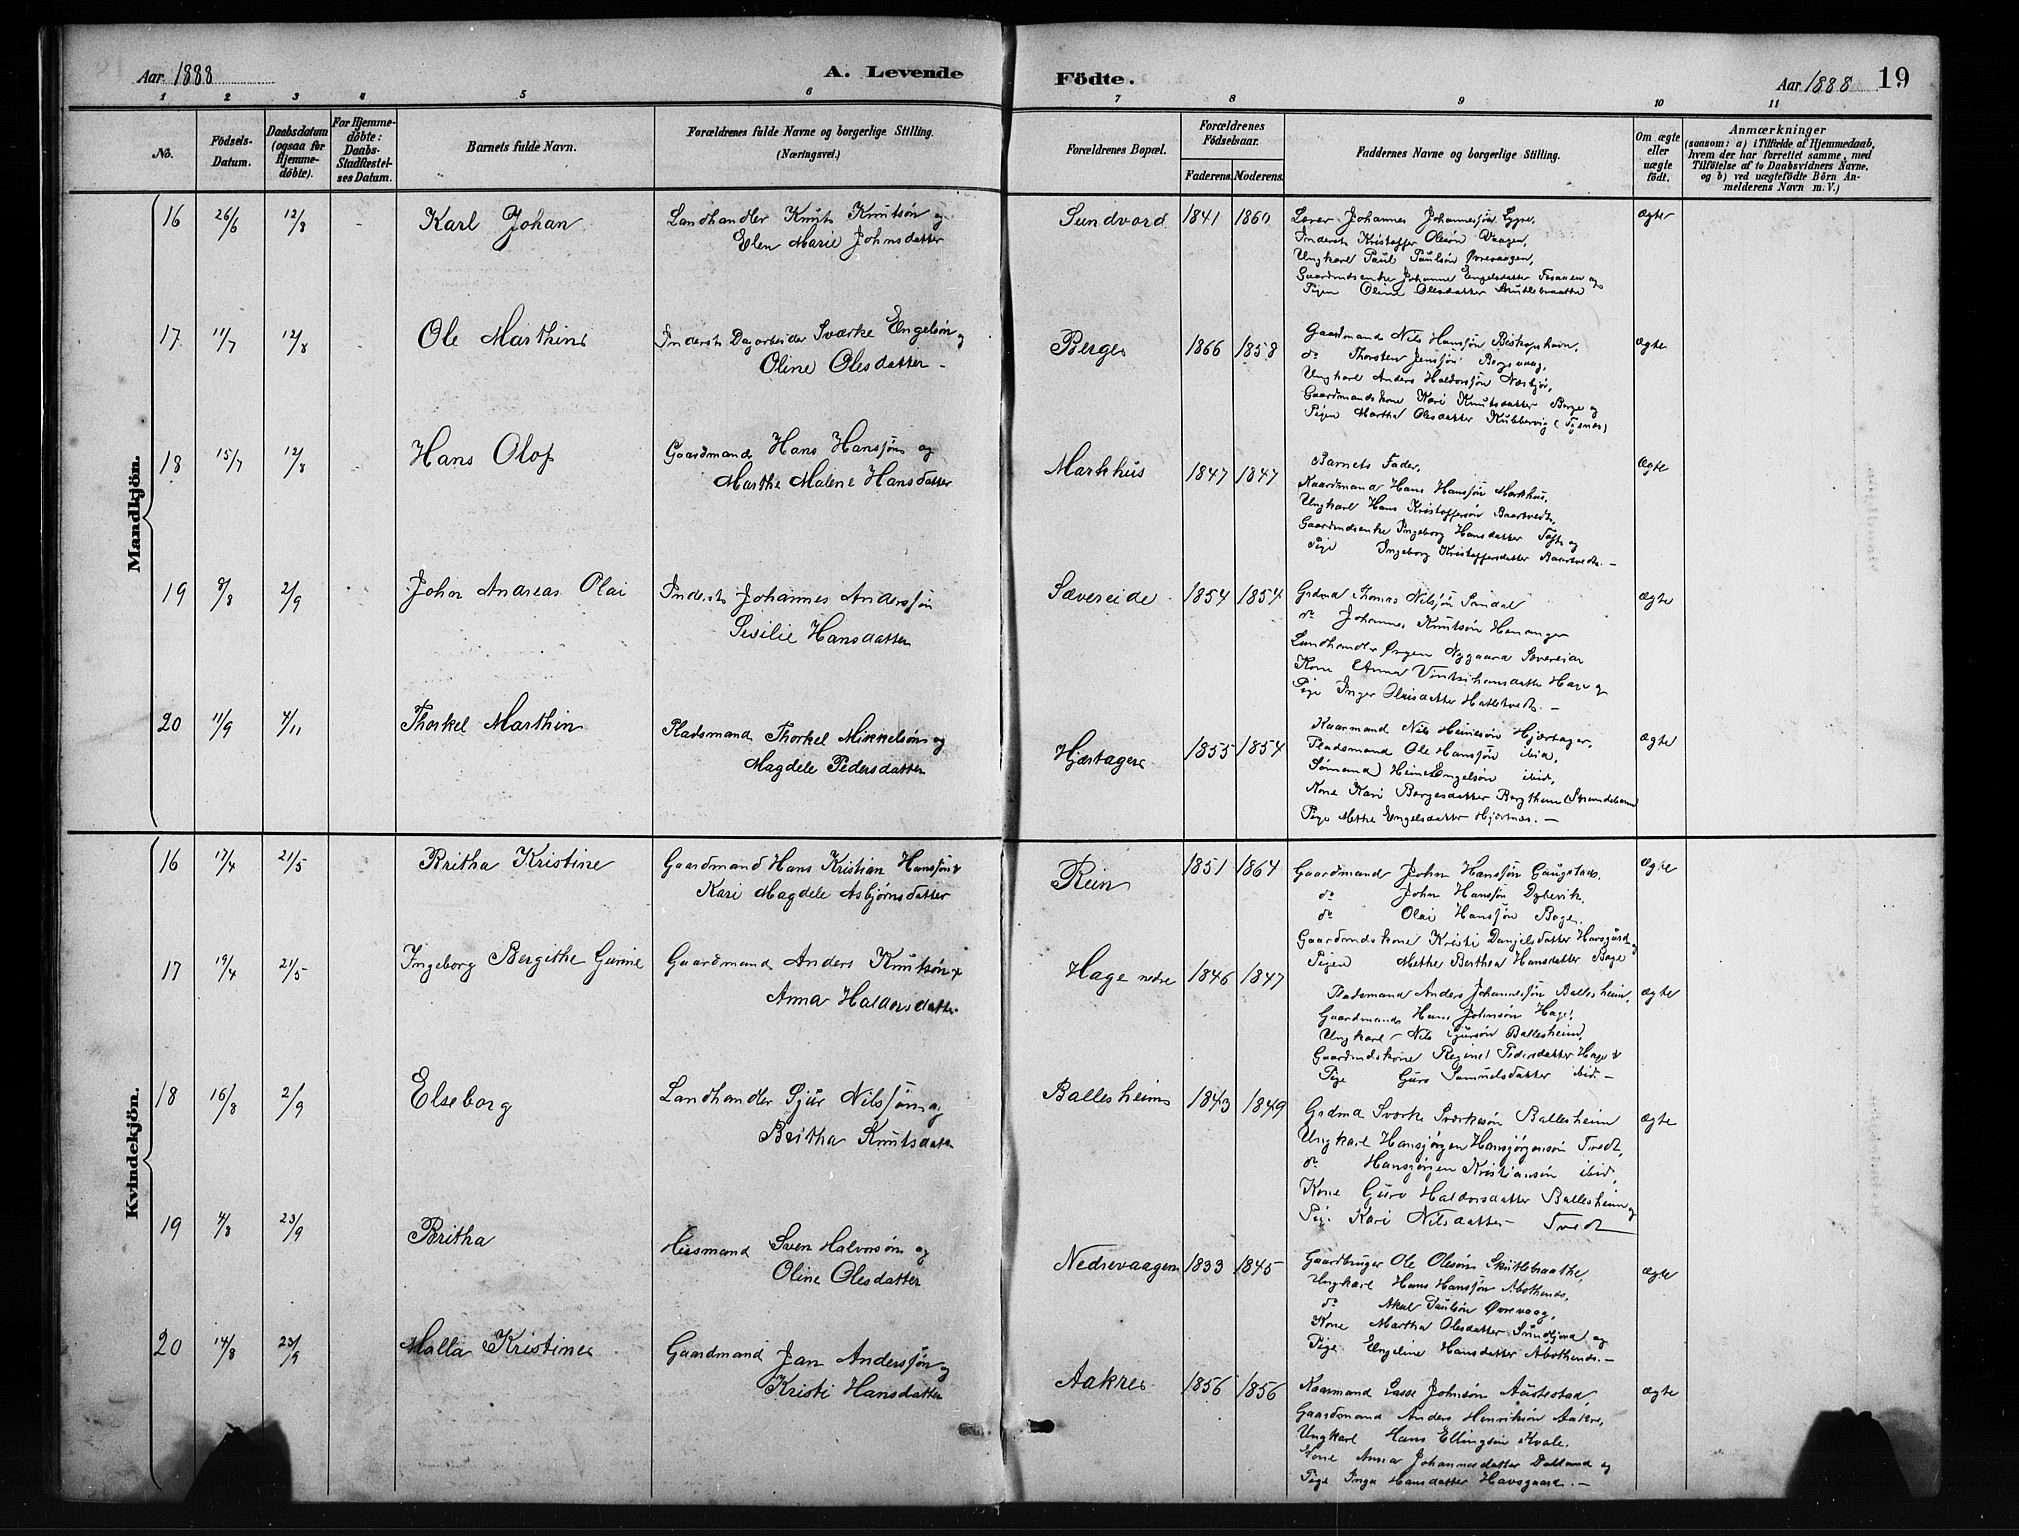 Aar 1888
A. Levende
Födte.
Aar 1888
19
1 2 3 4 5 6 7 8 9 10 11
No.
Födsels-
Datum.
Daabsdatum
(ogsaa for
Hjemme-
döbte).
For Hjemme-
döbte:
Daabs-
Stadfæstel-
ses Datum.
Barnets fulde Navn.
Forældrenes fulde Navne og borgerlige Stilling.
(Næringsvei.)
Forældrenes Bopæl.
Forældrenes
Födselsaar.
Faderens. Moderens.
Faddernes Navne og borgerlige Stilling.
Om ægte
eller
uægte
födt.
Anmærkninger
(saasom: a) i Tilfælde af Hjemmedaab,
hvem der har forrettet samme, med
Tilföielse af to Daabsvidners Navne,
og b) ved uægtefödte Börn An-
melderens Navn m. V.)
Mandkjön.
16 26/6 12/8 Karl Johan
Landhandler Knut Knutsön og
Elen Marie Johnsdatter
Sundvord 1841 1860
Lærer Johannes Johannessön Lygre,
Inderst Kristoffer Olesön Vaagen,
Ungkarl Paul Paulsön Övrevaagen,
Gaardmdsenke Johanne Engelsdatter
Pigen Oline Olesdatter
ægte
17 11/7 12/8 Ole Marthin
Inderst Dagarbeider Sværke Engelsön og
Oline Olesdatter
Berge 1866 1858
Gaardmand Nils Hanssön Biskophavn,
do Thorsten Jenssön
Ungkarl Anders Haldorssön
Gaardmandskone Kari Knutsdatter Berge og
Pigen Martha Olesdatter Kubbervig
Ægte
18 15/7 12/8 Hans Olaf
Gaardmand Hans Hanssön og
Marthe Malene Hansdatter
Markhus 1847 1847
Barnets Fader,
Kaardmand Hans Hanssön Markhus,
Ungkarl Hans Kristoffersön Baartvedt,
Gaardmdsenke Ingeborg Hansdatter Tofte og
Pige Ingeborg Kristoffersdatter Baartvedt. -
Ægte
19 8/8 2/9 John Andreas Olai
Inderst Johannes Anderssön
Sesilie Hansdatter
Sævereide 1854 1854
Grdmd Thomas Nilssön Sandal
do Johannes Knutsön Hananger
Landhandler Örgen Nygaard Sævereide
Kone Anna Hage og
Pige Inger Oleisdatter Hatletvedt. -
ægte
20 11/9 4/11 Thorkel Marthin
Pladsmand Thorkel Mikkelsön og
Magdele Pedersdatter
Hjærtager 1855 1854
Kaarmand Nils Heinesön Hjærtager,
Pladsmand Ole Hanssön ibid,
Sömand Heine Engelsön ibid,
Kone Kari Börgesdatter
Pige Methe Engelsdatter Hjærtnes. -
ægte
Kvindekjön.
16 17/4 21/5 Britha Kristine
Gaardmand Hans Kristian Hanssön &
Kari Magdele Asbjörnsdatter
Rein 1851 1864
Gaardmand John Hanssön Gaugstad,
do John Hanssön Dybevik,
do Olai Hanssön Boge,
Gaardmdskone Kristi Danjelsdatter Havsgård og
Pigen Methe Berthea Hansdatter Boge
Ægte
17 19/4 21/5 Ingeborg Bergithe Gurine
Gaardmand Anders Knutsön &
Anna Haldorsdatter
Hage nedre 1846 1847
Pladsmand Anders Johannessön Ballesheim,
Gaardmand Hans Johnsön Hage,
Ungkarl Nils Sjursön Ballesheim,
Gaardmdskone Regine Pedersdatter Hage &
Pige Guro Samuelsdatter ibid. -
ægte
18 16/8 2/9 Elseborg
Landhandler Sjur Nilssön og
Britha Knutsdatt
Ballesheim 1843 1849
Grdmd Sværke Sværkesön Ballesheim
Ungkarl Hansjörgen Hansjörgensön Tvedt,
do Hansjörgen Kristiansön ibid,
Kone Guro Haldorsdatter Ballesheim og
Pige Kari Nilsdatter Tvedt
ægte
19 4/8 23/9 Britha
Husmand Sven Halvorsön og
Oline Olesdatter
Nedrevaagen 1833 1845
Gaardbruger Ole Olesön
Ungkarl Hans Hanssön Abothsnes,
do Aksel Paulsön Övrevaag,
Kone Martha Olesdatter Sundfjord og
Pige Engeline Hansdatter Abothsnes. -
ægte
20 14/8 23/9 Malla Kristine
Gaardmand Jan Anderssön og
Kristi Hansdatter
Aakre 1856 1856
Kaarmand Lasse Johnsön Austestad,
Gaardmand Anders Henriksön Aakre,
Ungkarl Hans Ellingsön Kvale,
Kone Anna Johannesdatter Dalland og
Pige Inga Hansdatter Havsgaard. -
ægte